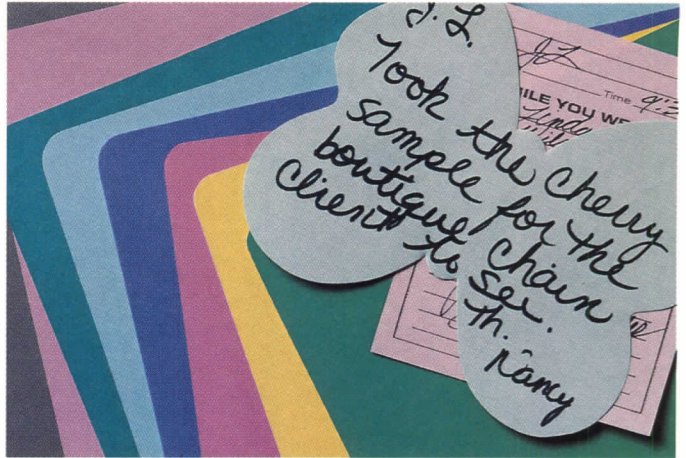 J.L.
Took the cherry
sample for the
boutique chain
client to see.
Th.
Nancy
JL
Time 9:2
ILE YOU WE
Linda